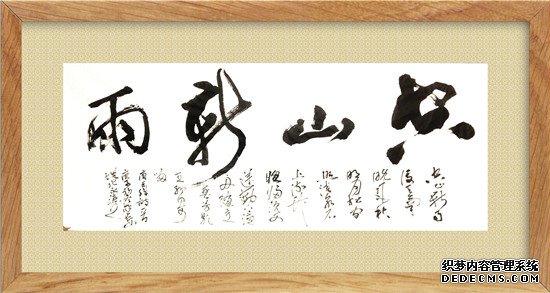 空山新雨
空山新雨
後天氣
晚来秋
明月松间
照清泉石
上流竹
喧归浣女
莲動下渔
舟随意
春芳歇
王孙自可
留
织梦内容管理系统
DEDECMS.COM